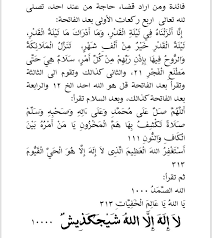 فائدة ومن اراد قضاء حاجة من عند احد، تصلى
لله تعالى اربع ركعات الأولى بعد الفاتحة:
إِنَّا أَنْزَلْنَاهُ فِي لَيْلَةِ الْقَدْرِ، وَمَا أَدْرَاكَ مَا لَيْلَةُ الْقَدْرِ،
لَيْلَةُ الْقَدْرِ خَيْرٌ مِنْ أَلْفِ شَهْرٍ، تَنَزَّلُ الْمَلَائِكَةُ
وَالرُّوحُ فِيهَا بِإِذْنِ رَبِّهِمْ مِنْ كُلِّ أَمْرٍ، سَلَامٌ هِيَ حَتَّى
مَطْلَعِ الْفَجْرِ ٢١، والثانى كذالك وتقوم الى الثالثة
وتقرأ بعد الفاتحة قل هو الله احد الخ ١٢ والرابعة
بعد الفاتحة كذالك، وبعد السلام تقرأ:
اَللّٰهُمَّ صَلِّ عَلَى مُحَمَّدٍ وَعَلَى آلِهِ وَصَحْبِهِ وَسَلِّمْ
صَلَاةً تَكْشِفُ بِهَا هَمَّ الْمَحْزُونِ يَا مَنْ أَمْرُهُ بَيْنَ
الْكَافِ وَالنُّونِ ١١١
أَسْتَغْفِرُ اللهَ الْعَظِيمَ الَّذِى لَا إِلٰهَ إِلَّا هُوَ الْحَيُّ الْقَيُّومُ
٣١٣
ثم تقرأ:
اَللهُ الصَّمَدُ ١٠٠٠
اَللهُ يَا عَالِمَ الْخَفِيَّاتِ ٣١٣
لَا إِلٰهَ إِلَّا اللهُ ١٠٠٠٠